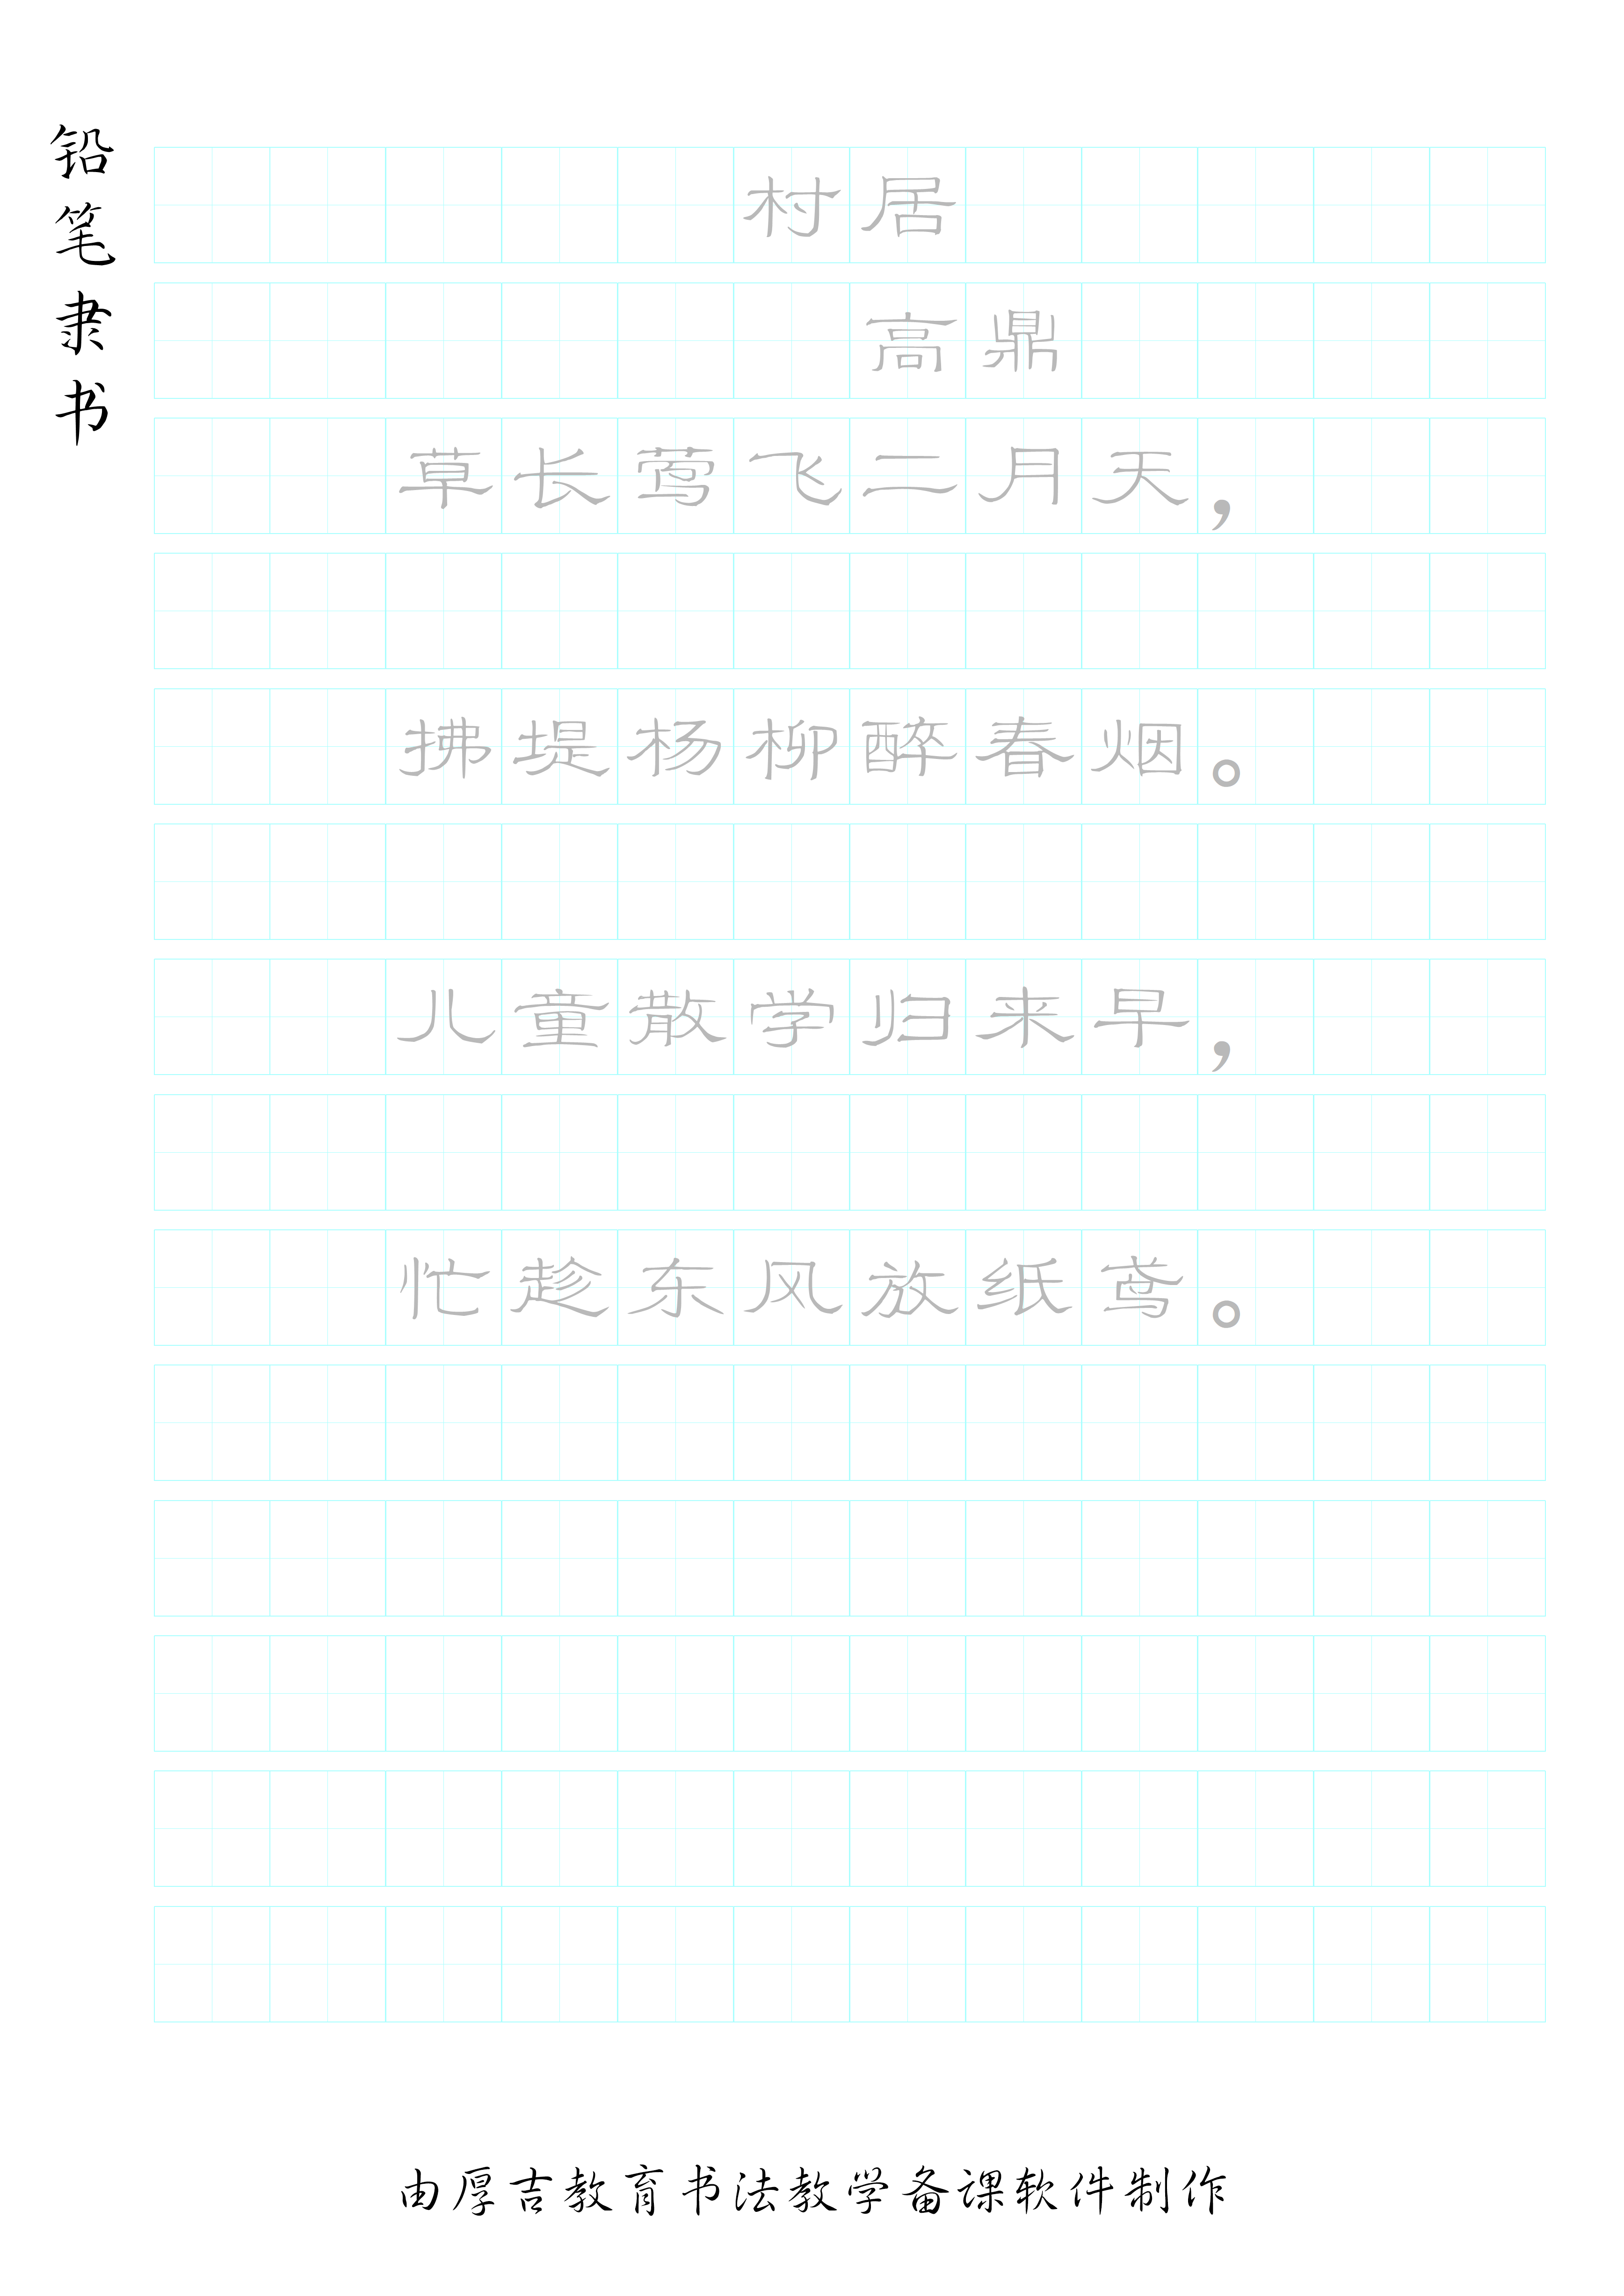 铅笔隶书
村居
高鼎
草长莺飞二月天，
拂堤杨柳醉春烟。
儿童散学归来早，
忙趁东风放纸鸢。
由厚吉教育书法教学备课软件制作